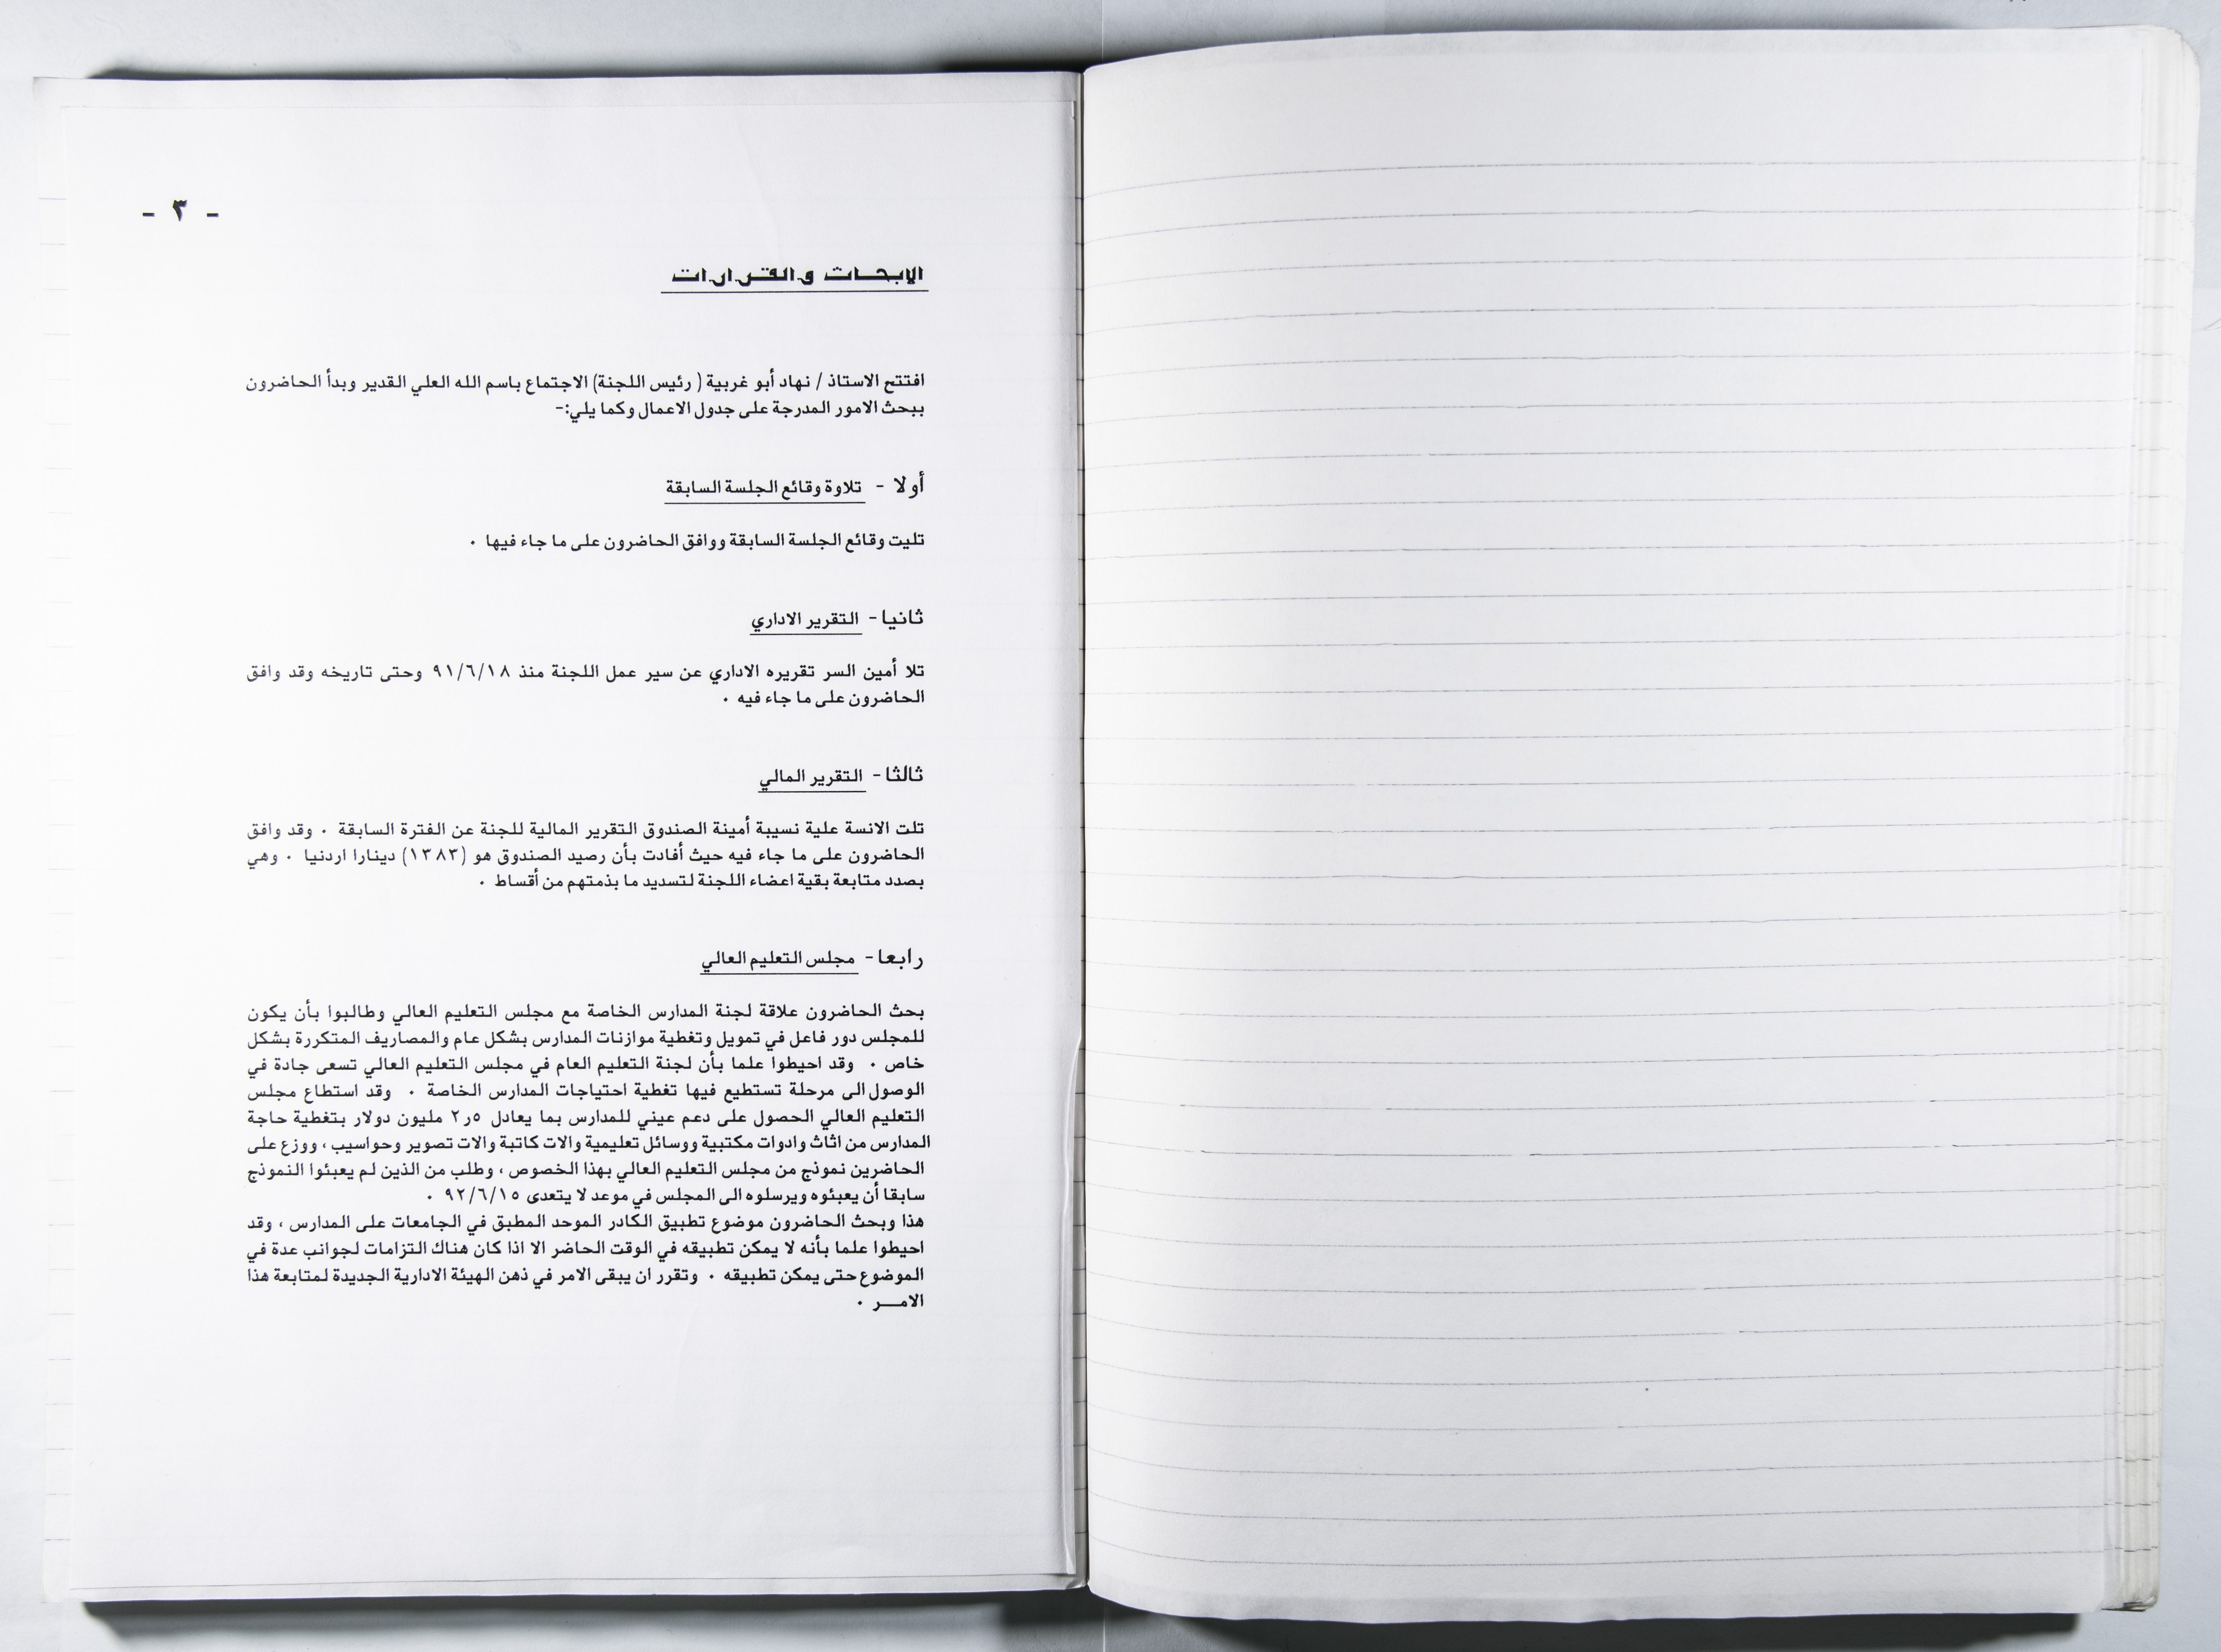 - ٣ -
الابحاث والقرارات
افتتح الاستاذ / نهاد أبو غربية ( رئيس اللجنة) الاجتماع باسم الله العلي القدير وبدأ الحاضرون
ببحث الامور المدرجة على جدول الاعمال وكما يلي:-
أولا - تلاوة وقائع الجلسة السابقة
تليت وقائع الجلسة السابقة ووافق الحاضرون على ما جاء فيها ٠
ثانيا - التقرير الاداري
تلا أمين السر تقريره الاداري عن سير عمل اللجنة منذ ٩١/٦/١٨ وحتى تاريخه وقد وافق
الحاضرون على ما جاء فيه ٠
ثالثا - التقرير المالي
تلت الانسة علية نسيبة أمينة الصندوق التقرير المالية للجنة عن الفترة السابقة ٠ وقد وافق
الحاضرون على ما جاء فيه حيث أفادت بأن رصيد الصندوق هو (١٣٨٣) دينارا اردنيا ٠ وهي
بصدد متابعة بقية اعضاء اللجنة لتسديد ما بذمتهم من أقساط ٠
رابعا - مجلس التعليم العالي
بحث الحاضرون علاقة لجنة المدارس الخاصة مع مجلس التعليم العالي وطالبوا بأن يكون
للمجلس دور فاعل في تمويل وتغطية موازنات المدارس بشكل عام والمصاريف المتكررة بشكل
خاص ٠ وقد احيطوا علما بأن لجنة التعليم العام في مجلس التعليم العالي تسعى جادة في
الوصول الى مرحلة تستطيع فيها تغطية احتياجات المدارس الخاصة ٠ وقد استطاع مجلس
التعليم العالي الحصول على دعم عيني للمدارس بما يعادل ٥ر٢ مليون دولار بتغطية حاجة
المدارس من اثاث وادوات مكتبية ووسائل تعليمية والات كاتبة والات تصوير وحواسيب ، ووزع على
الحاضرين نموذج من مجلس التعليم العالي بهذا الخصوص ، وطلب من الذين لم يعبئوا النموذج
سابقا أن يعبئوه ويرسلوه الى المجلس في موعد لا يتعدى ٩٢/٦/١٥ ٠
هذا وبحث الحاضرون موضوع تطبيق الكادر الموحد المطبق في الجامعات على المدارس ، وقد
احيطوا علما بأنه لا يمكن تطبيقه في الوقت الحاضر الا اذا كان هناك التزامات لجوانب عدة في
الموضوع حتى يمكن تطبيقه ٠ وتقرر ان يبقى الامر في ذهن الهيئة الادارية الجديدة لمتابعة هذا
الامـــر ٠